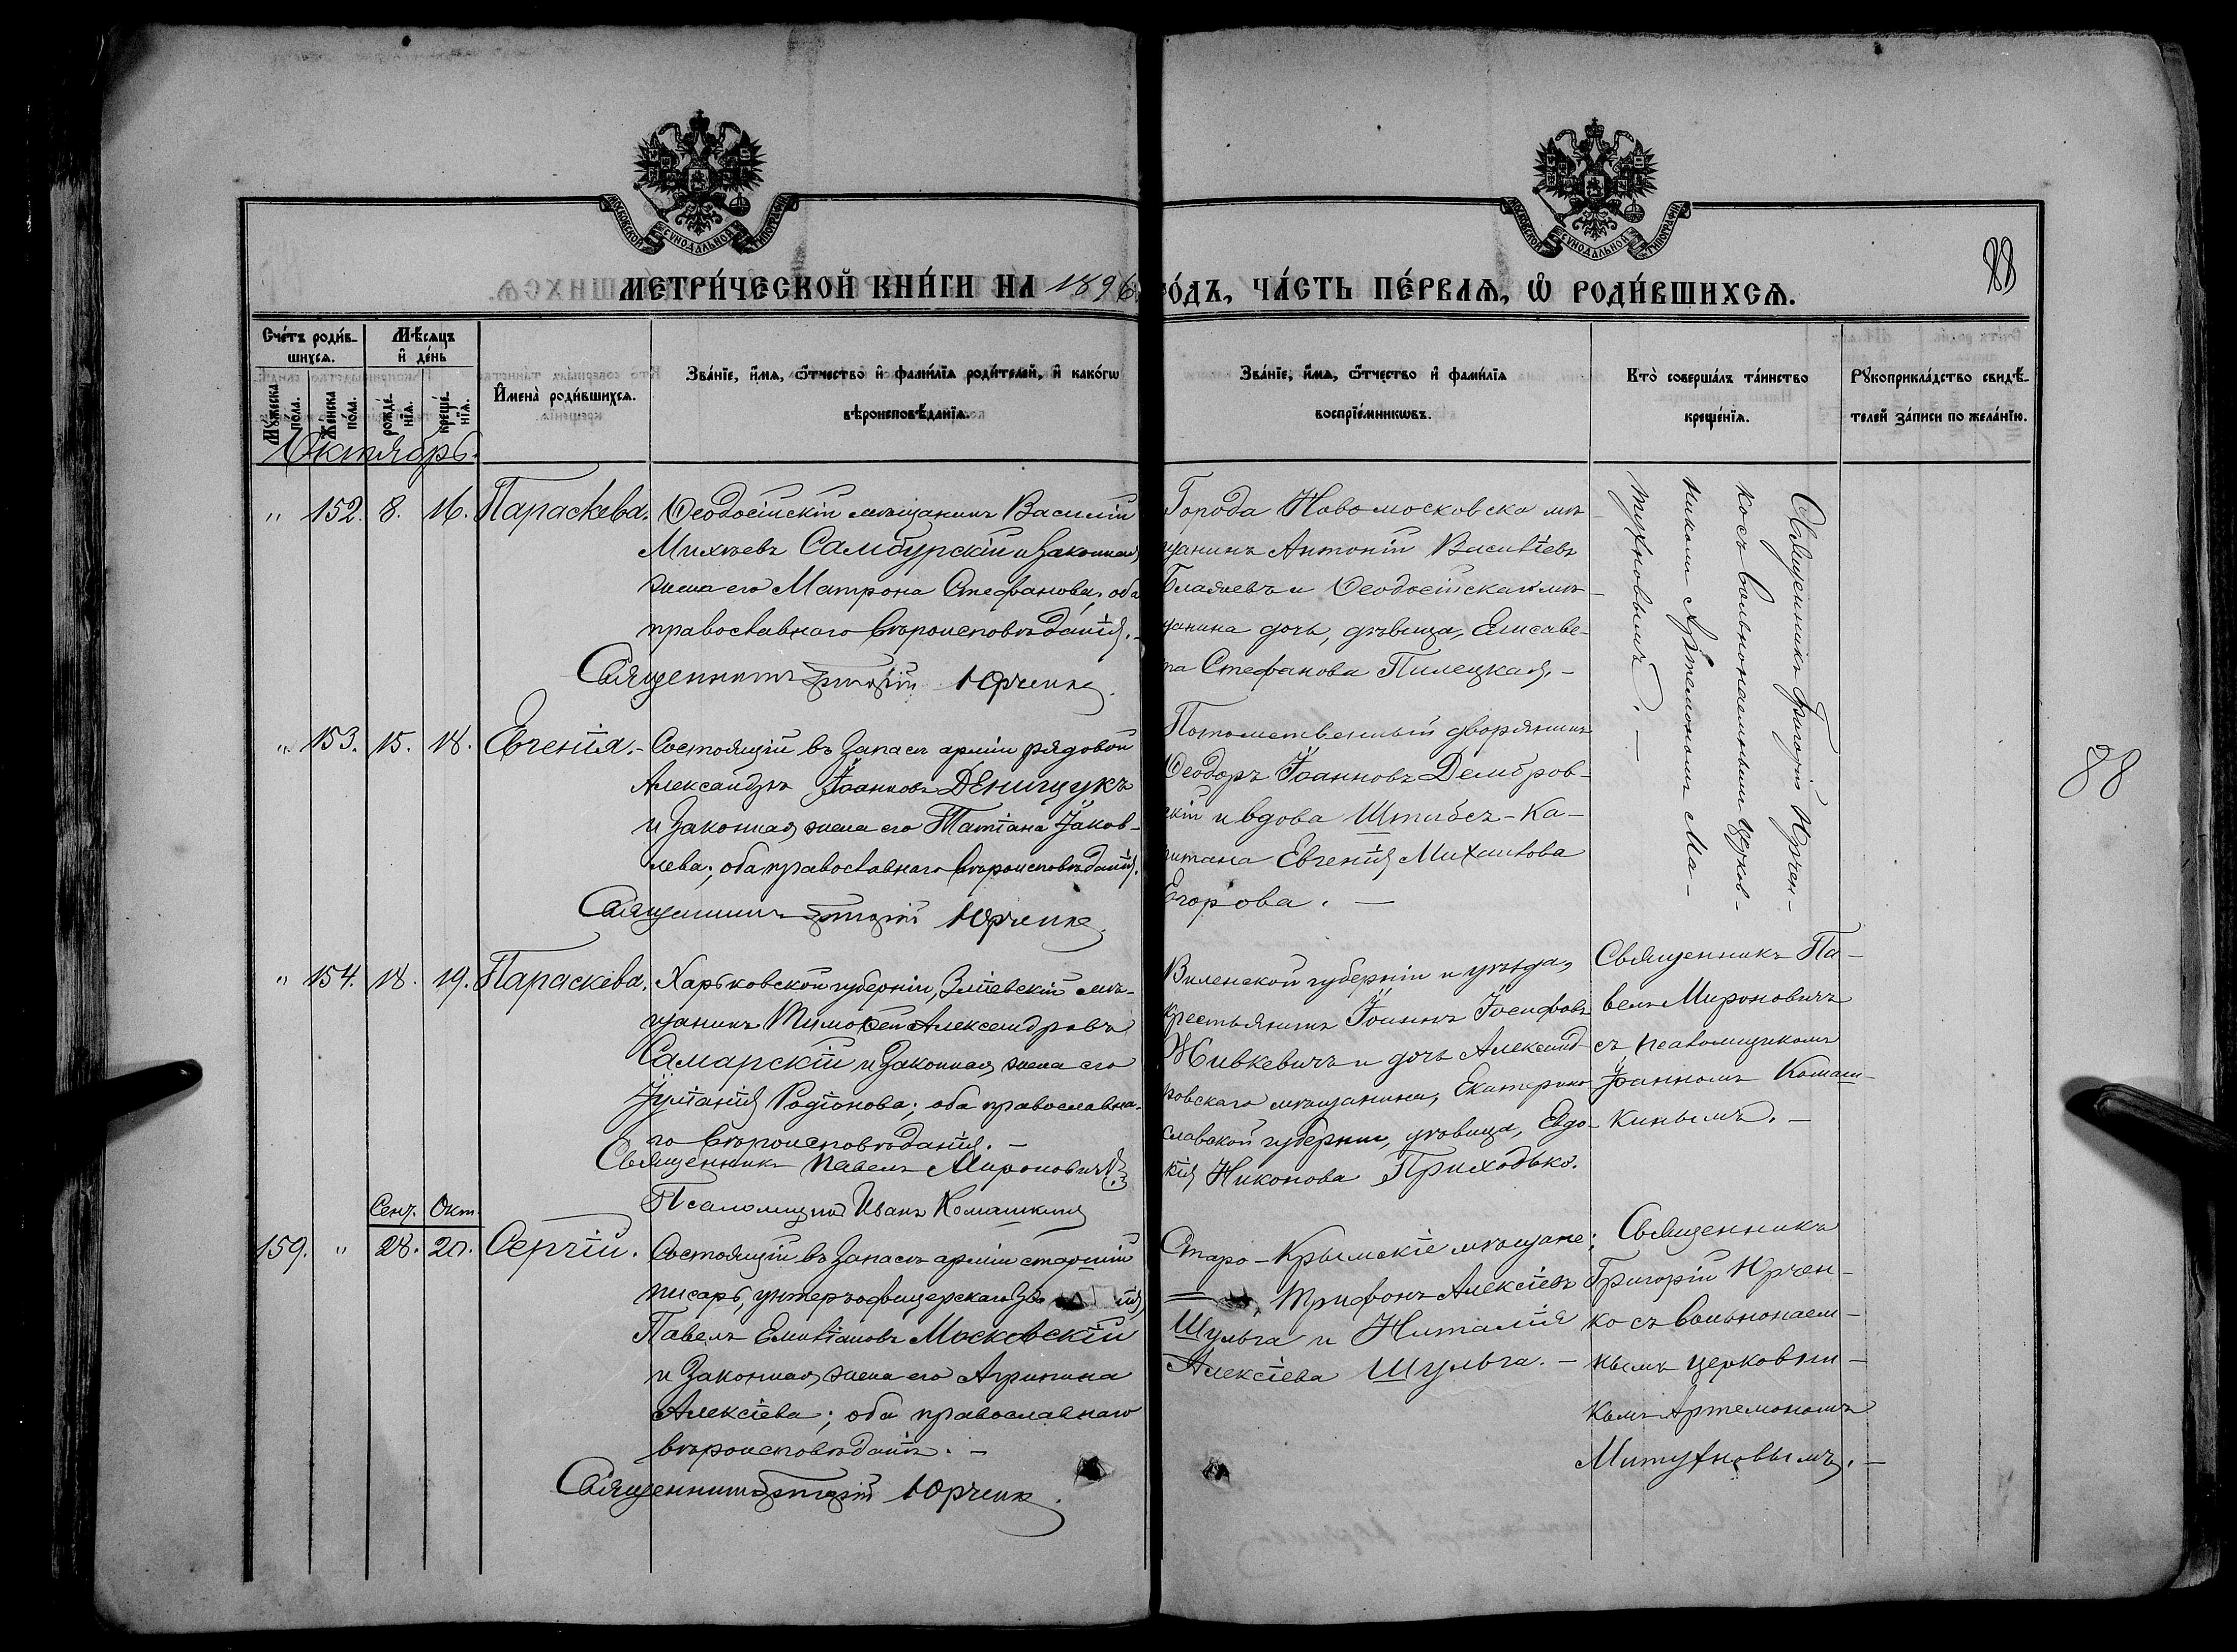 МОСКОВСКОЙ СУНОДАЛЬНОЙ ТИПОГРАФІИ
МОСКОВСКОЙ СУНОДАЛЬНОЙ ТИПОГРАФІИ
МЕТРИ́ЧЕСКОЙ КНИ́ГИ НА 1896
ГО́ДЪ, ЧА́СТЬ ПЕ́РВАѦ, Ѡ РОДИ́ВШИХСѦ.
88
Сче́тъ роди́в-
шихсѧ.
Мѣ́сѧцъ
и҆ де́нь
Му́жеска
по́ла.
Же́нска
по́ла.
рожде́-
нїѧ.
креще́-
нїѧ.
И҆мена̀ роди́вшихсѧ.
Зва́нїе, и҆́мѧ, ѻ҆́тчество и҆ фами́лїѧ роди́телей, и҆ како́гѡ
вѣроисповѣ́данїѧ.
Зва́нїе, и҆́мѧ, ѻ҆́тчество и҆ фами́лїѧ
воспрїе́мникѡвъ.
Кто̀ соверша́лъ та́инство
креще́нїѧ.
Рꙋкоприкла́дство свидѣ́-
телей за́писи по жела́нїю.
Октябрь.
" 152. 8. 16. Параскева.
Ѳеодосійскій мѣщанинъ Василій
Михѣевъ Самбурскій и законная
жена его Матрона Стефанова, оба
православнаго вѣроисповѣданія.-
Священникъ Григорій Юрченко.
Города Новомосковска мѣ-
щанинъ Антоній Василіевъ
и Ѳеодосійскаго мѣ-
щанина дочь, дѣвица, Елисаве-
та Стефанова Пилецкая.-
Священникъ Григорій Юрчен-
ко съ вольнонаемнымъ церков-
никомъ Артемономъ Ма-
тухновымъ. -
" 153. 15. 18. Евгенія.-
Состоящій въ запасѣ арміи рядовой
Александръ Іоанновъ Денищукъ
и законная жена его Татіана Іаков-
лева; оба православнаго вѣроисповѣданія.
Священникъ Григорій Юрченко.
Потомственный дворянинъ
Ѳеодоръ Іоанновъ Домбров-
скій и вдова Штабсъ-Ка-
питана Евгенія Михаилова
Егорова. -
" 154. 18. 19. Параскева.
Харьковской губерніи, Зміевскій мѣ-
щанинъ Тимоѳей Александровъ
Самарскій и законная жена его
Іуліанія Родіонова; оба православна-
го вѣроисповѣданія. -
Священникъ Павелъ Мироновичъ
Псаломщикъ Иванъ Комашкинъ
Виленской губерніи и уѣзда,
крестьянинъ Іоаннъ Іосифовъ
Живкевичъ и дочь Александ-
ровскаго мѣщанина, Екатерино-
славской губерніи, дѣвица, Евдо-
кія Никонова Приходько.
Священникъ Па-
велъ Мироновичъ
съ псаломщикомъ
Іоанномъ Комаш-
кинымъ. -
Сент. Окт.
159. " 28. 20. Сергій.
Состоящій въ запасѣ арміи старшій
писарь, унтеръ-офицерскаго зва ія
Павелъ Емиліановъ Московскій
и законная жена его Агрипина
Алексіева; оба православнаго
вѣроисповѣданія. -
Священникъ Григорій Юрченко.
Старо-Крымскіе мѣщане:
Трифонъ Алексіевъ
Шульга и Наталія
Алексіева Шульга. -
Священникъ
Григорій Юрчен-
ко съ вольнонаем-
нымъ церковни-
комъ Артемономъ
Матухновымъ. -
88